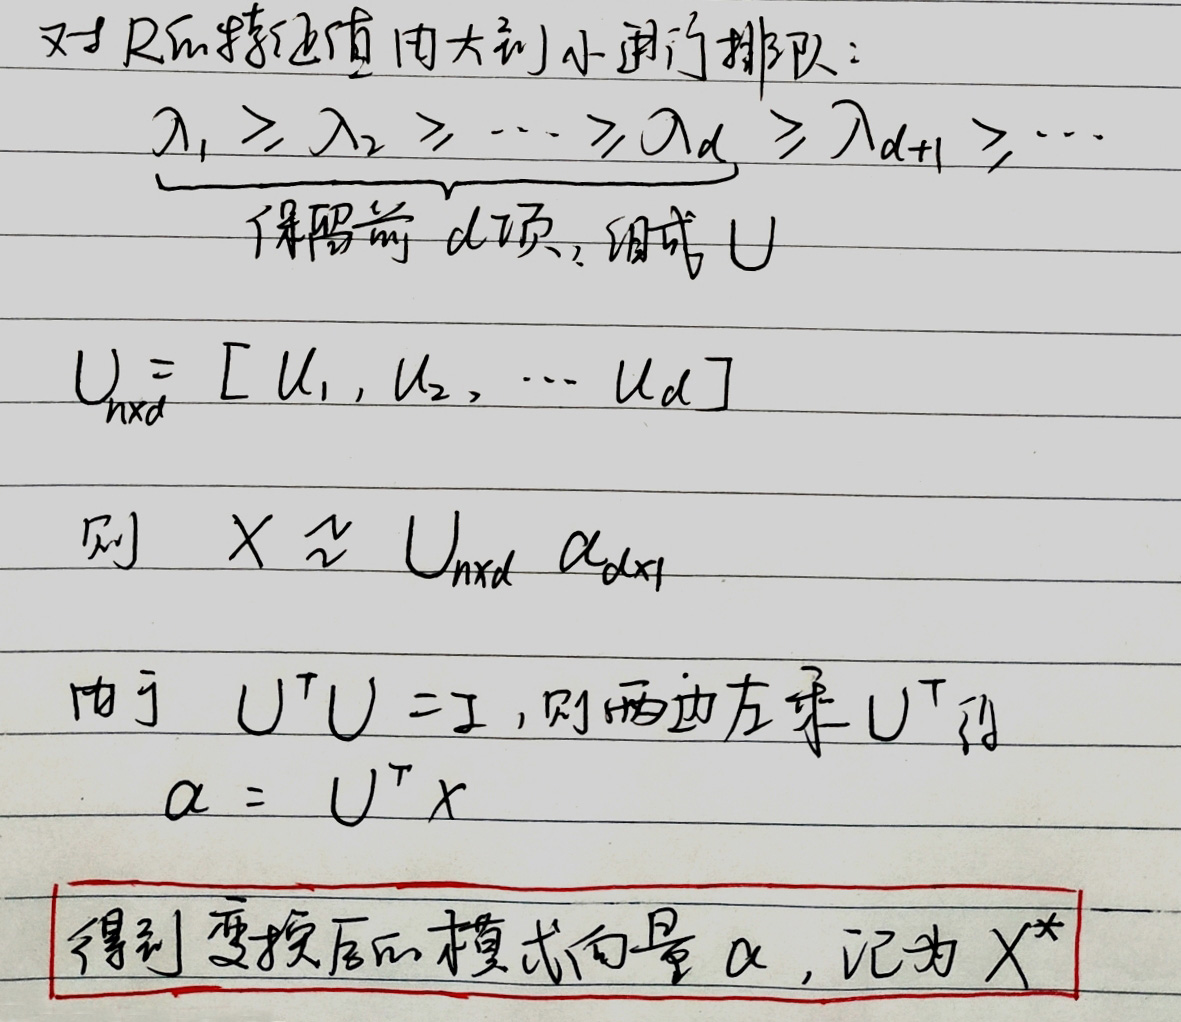 对R的特征值由大到小进行排队:
λ₁ ≥ λ₂ ≥ ··· ≥ λd ≥ λd+1 ≥ ···
保留前d项,组成U
Uₙₓd = [u₁, u₂, ··· ud]
则 X ≈ Uₙₓd αdₓ₁
由于 UᵀU = I,则两边左乘Uᵀ得
α = UᵀX
得到变换后的模式向量α,记为X*